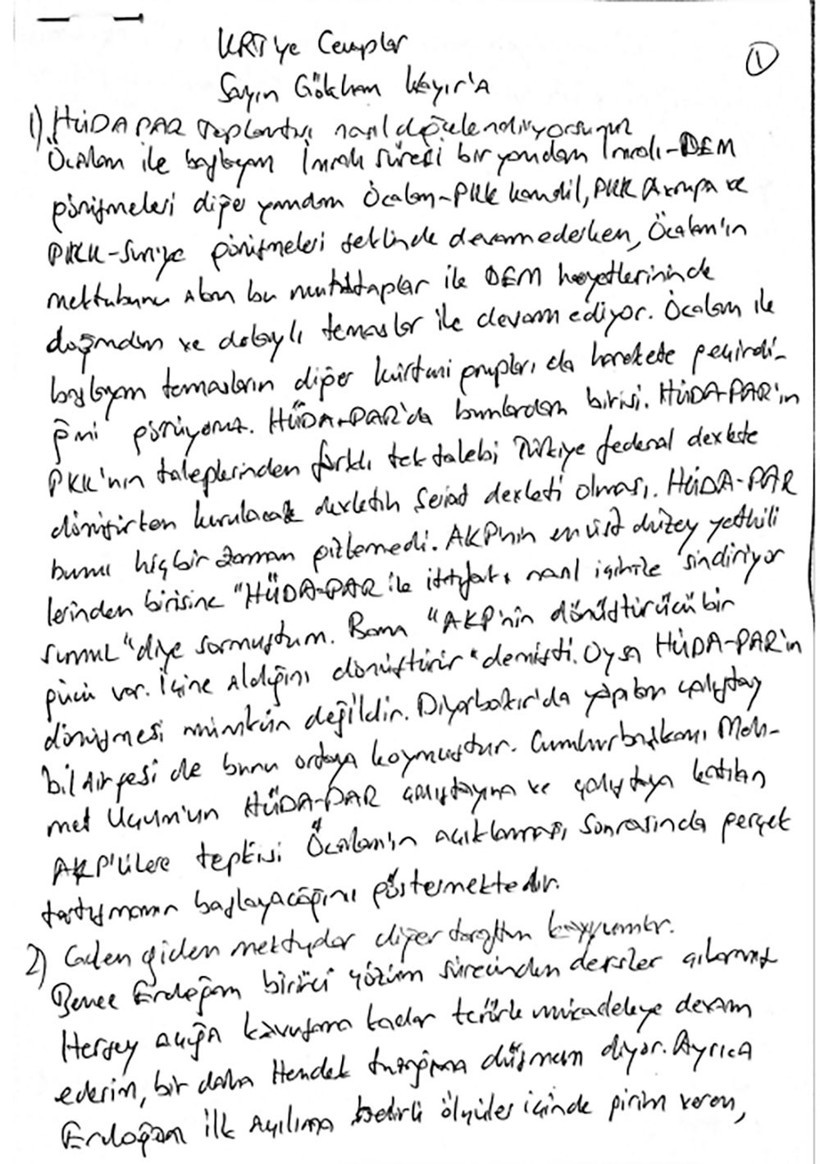 KRT'ye Cevaplar
①
Sayın Gökhan Kayır'A
1) HÜDAPAR toplantısı nasıl değerlendiriyorsunuz
Öcalan ile başlayan İmralı süreci bir yandan İmralı-DEM
görüşmeleri diğer yandan Öcalan-PKK Kandil, PKK Avrupa ve
PKK-Suriye görüşmeleri şeklinde devam ederken, Öcalan'ın
mektubunu alan bu muhataplar ile DEM heyetlerininde
doğrudan ve dolaylı temaslar ile devam ediyor. Öcalan ile
başlayan temasların diğer kürtçü grupları da harekete geçirdi-
ğini görüyoruz. HÜDA-PAR'da bunlardan birisi. HÜDA-PAR'ın
PKK'nın taleplerinden farklı tek talebi Türkiye federal devlete
dönüşürken kurulacak devletin Şeriat devleti olması. HÜDA-PAR
bunu hiçbir zaman gizlemedi. AKP'nin en üst düzey yetkili
lerinden birisine "HÜDA-PAR ile ittifakı nasıl içinize sindiriyor
sunuz" diye sormuştum. Bana "AKP'nin dönüştürücü bir
gücü var. İçine aldığını dönüştürür" demişti. Oysa HÜDA-PAR'ın
dönüşmesi mümkün değildir. Diyarbakır'da yapılan çalıştay
bildirgesi de bunu ortaya koymuştur. Cumhurbaşkanı Meh-
met Uçum'un HÜDA-PAR çalıştayına ve çalıştaya katılan
AKP'lilere tepkisi Öcalan'ın açıklaması sonrasında gerçek
tartışmanın başlayacağını göstermektedir.
2) Gelen giden mektuplar diğer taraftan kayyumlar.
Bence Erdoğan birinci çözüm sürecinden dersler çıkarmış
Herşey açığa kavuşana kadar terörle mücadeleye devam
ederim, bir daha Hendek tuzağına düşmem diyor. Ayrıca
Erdoğan ilk Açılıma belirli ölçüler içinde pirim veren,